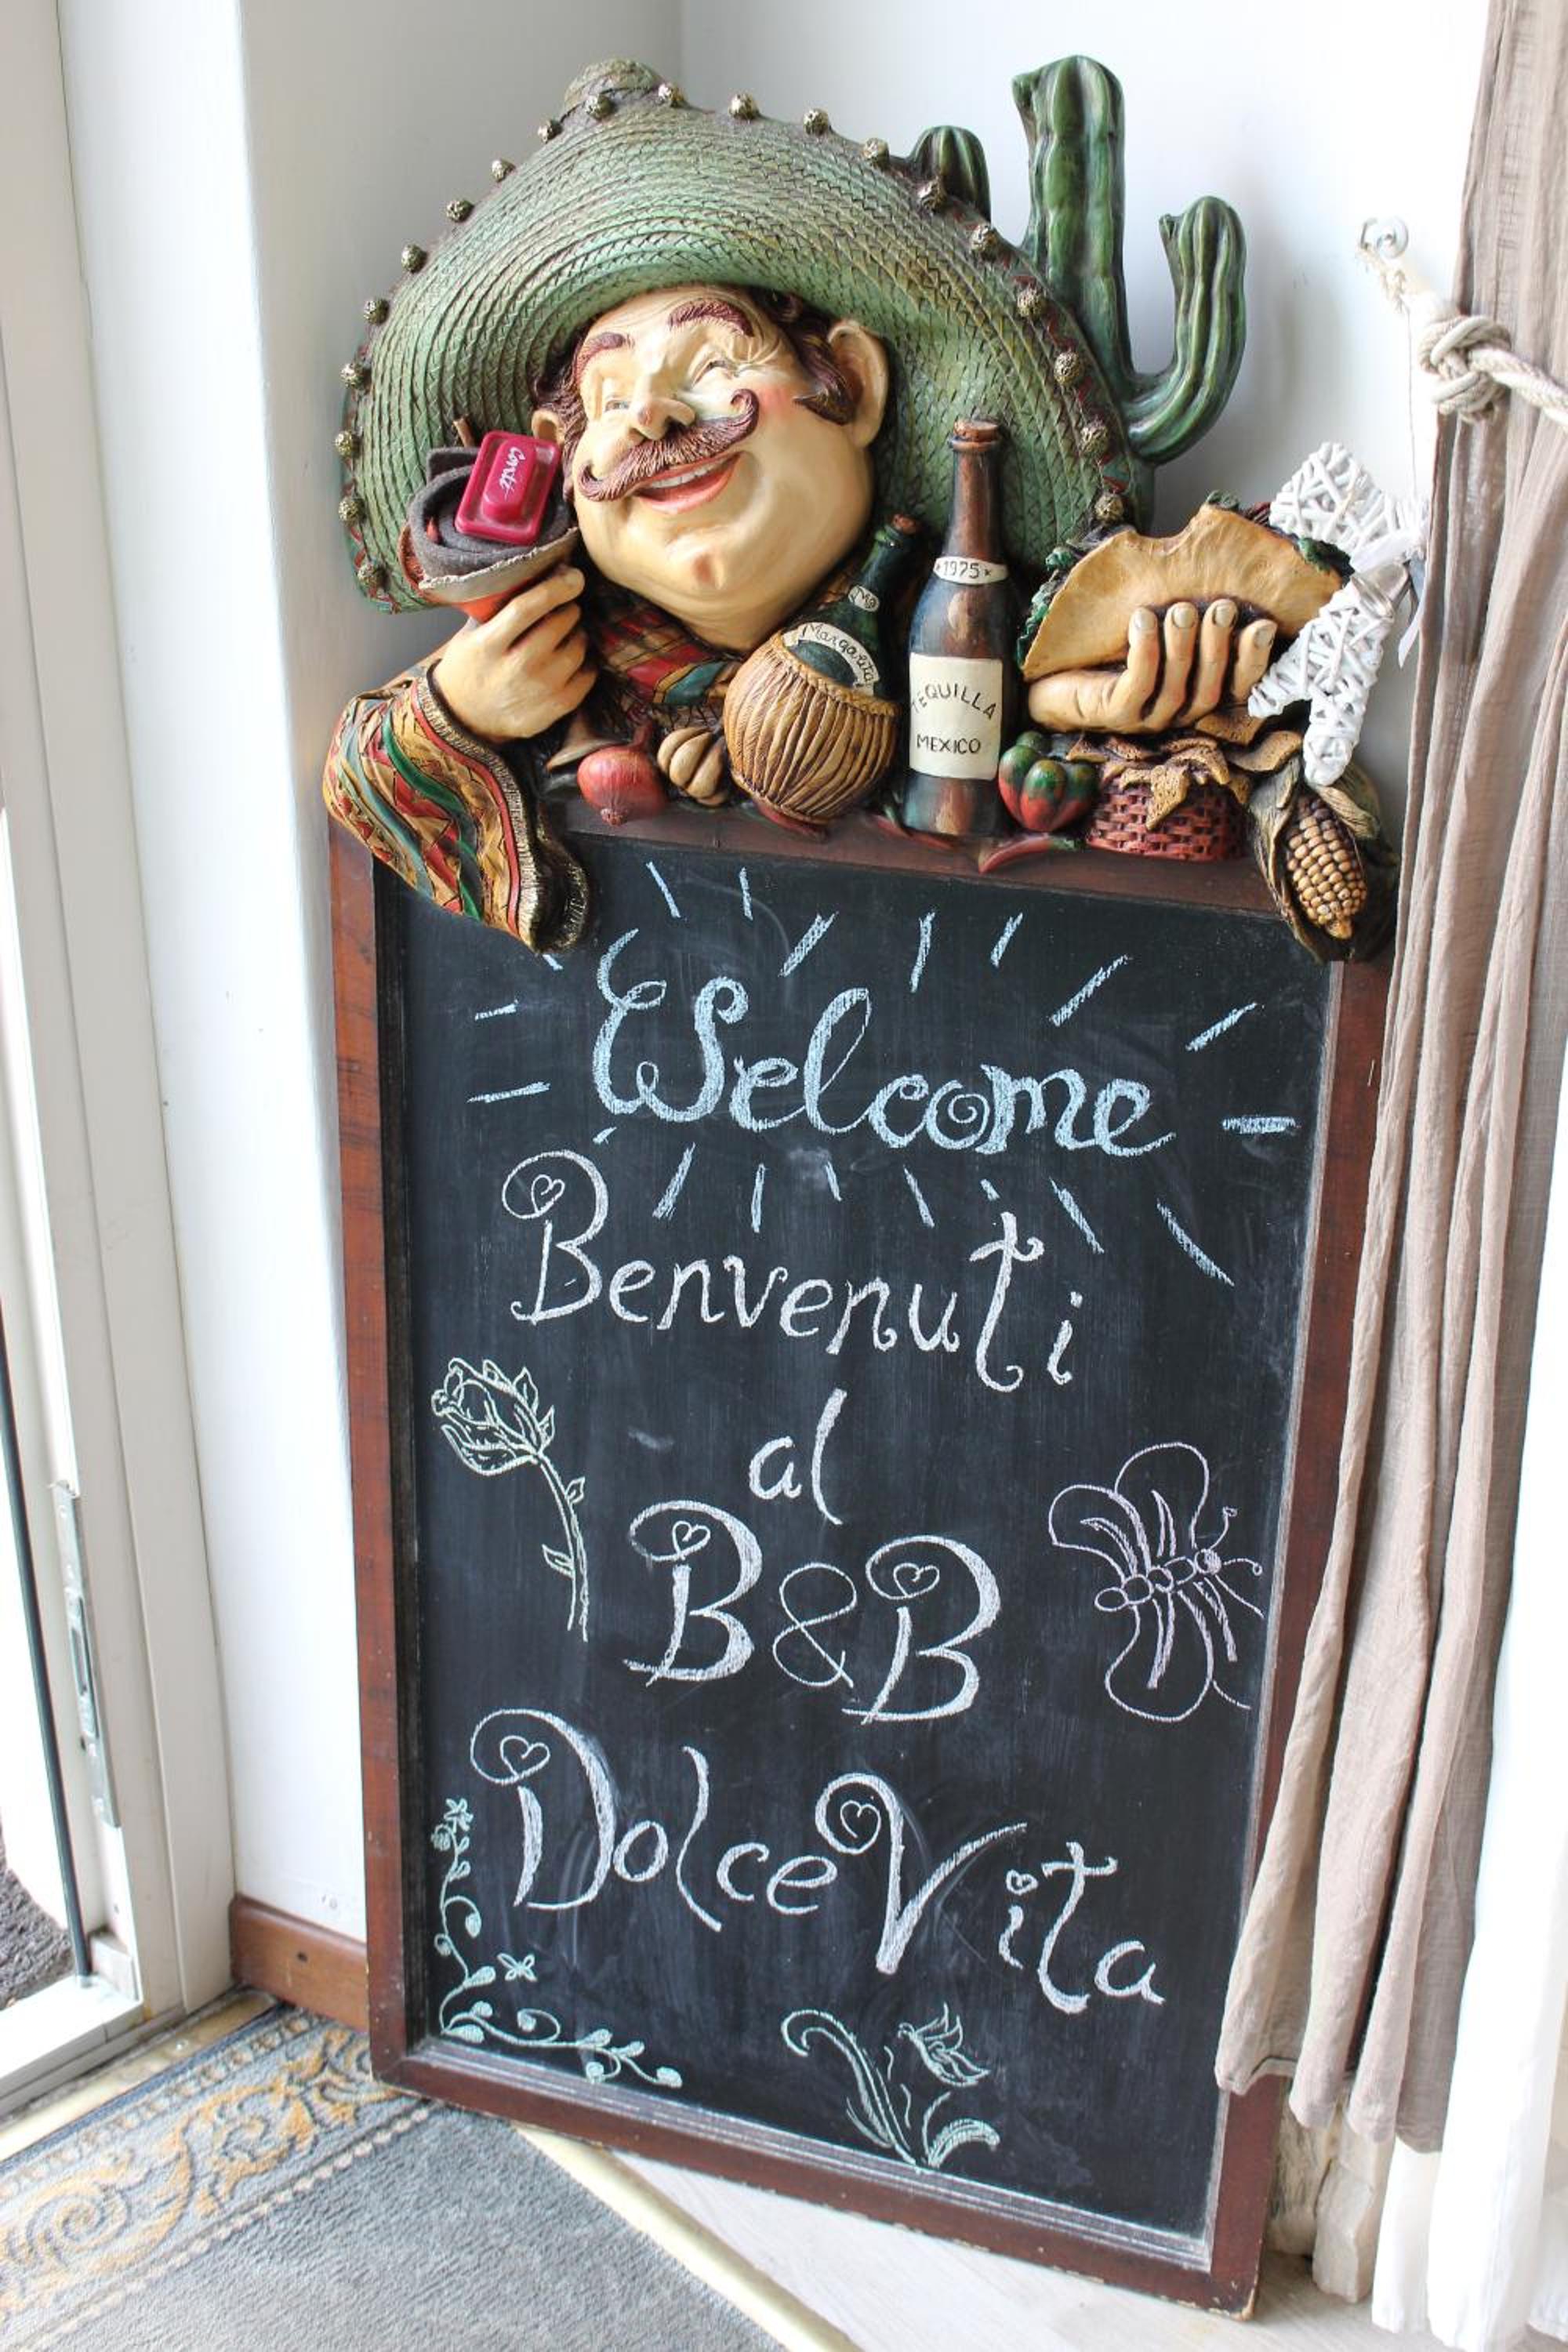 Conté
*1975*
Ma
Margarita
TEQUILLA
MEXICO
Welcome
Benvenuti
al
B&B
Dolce Vita